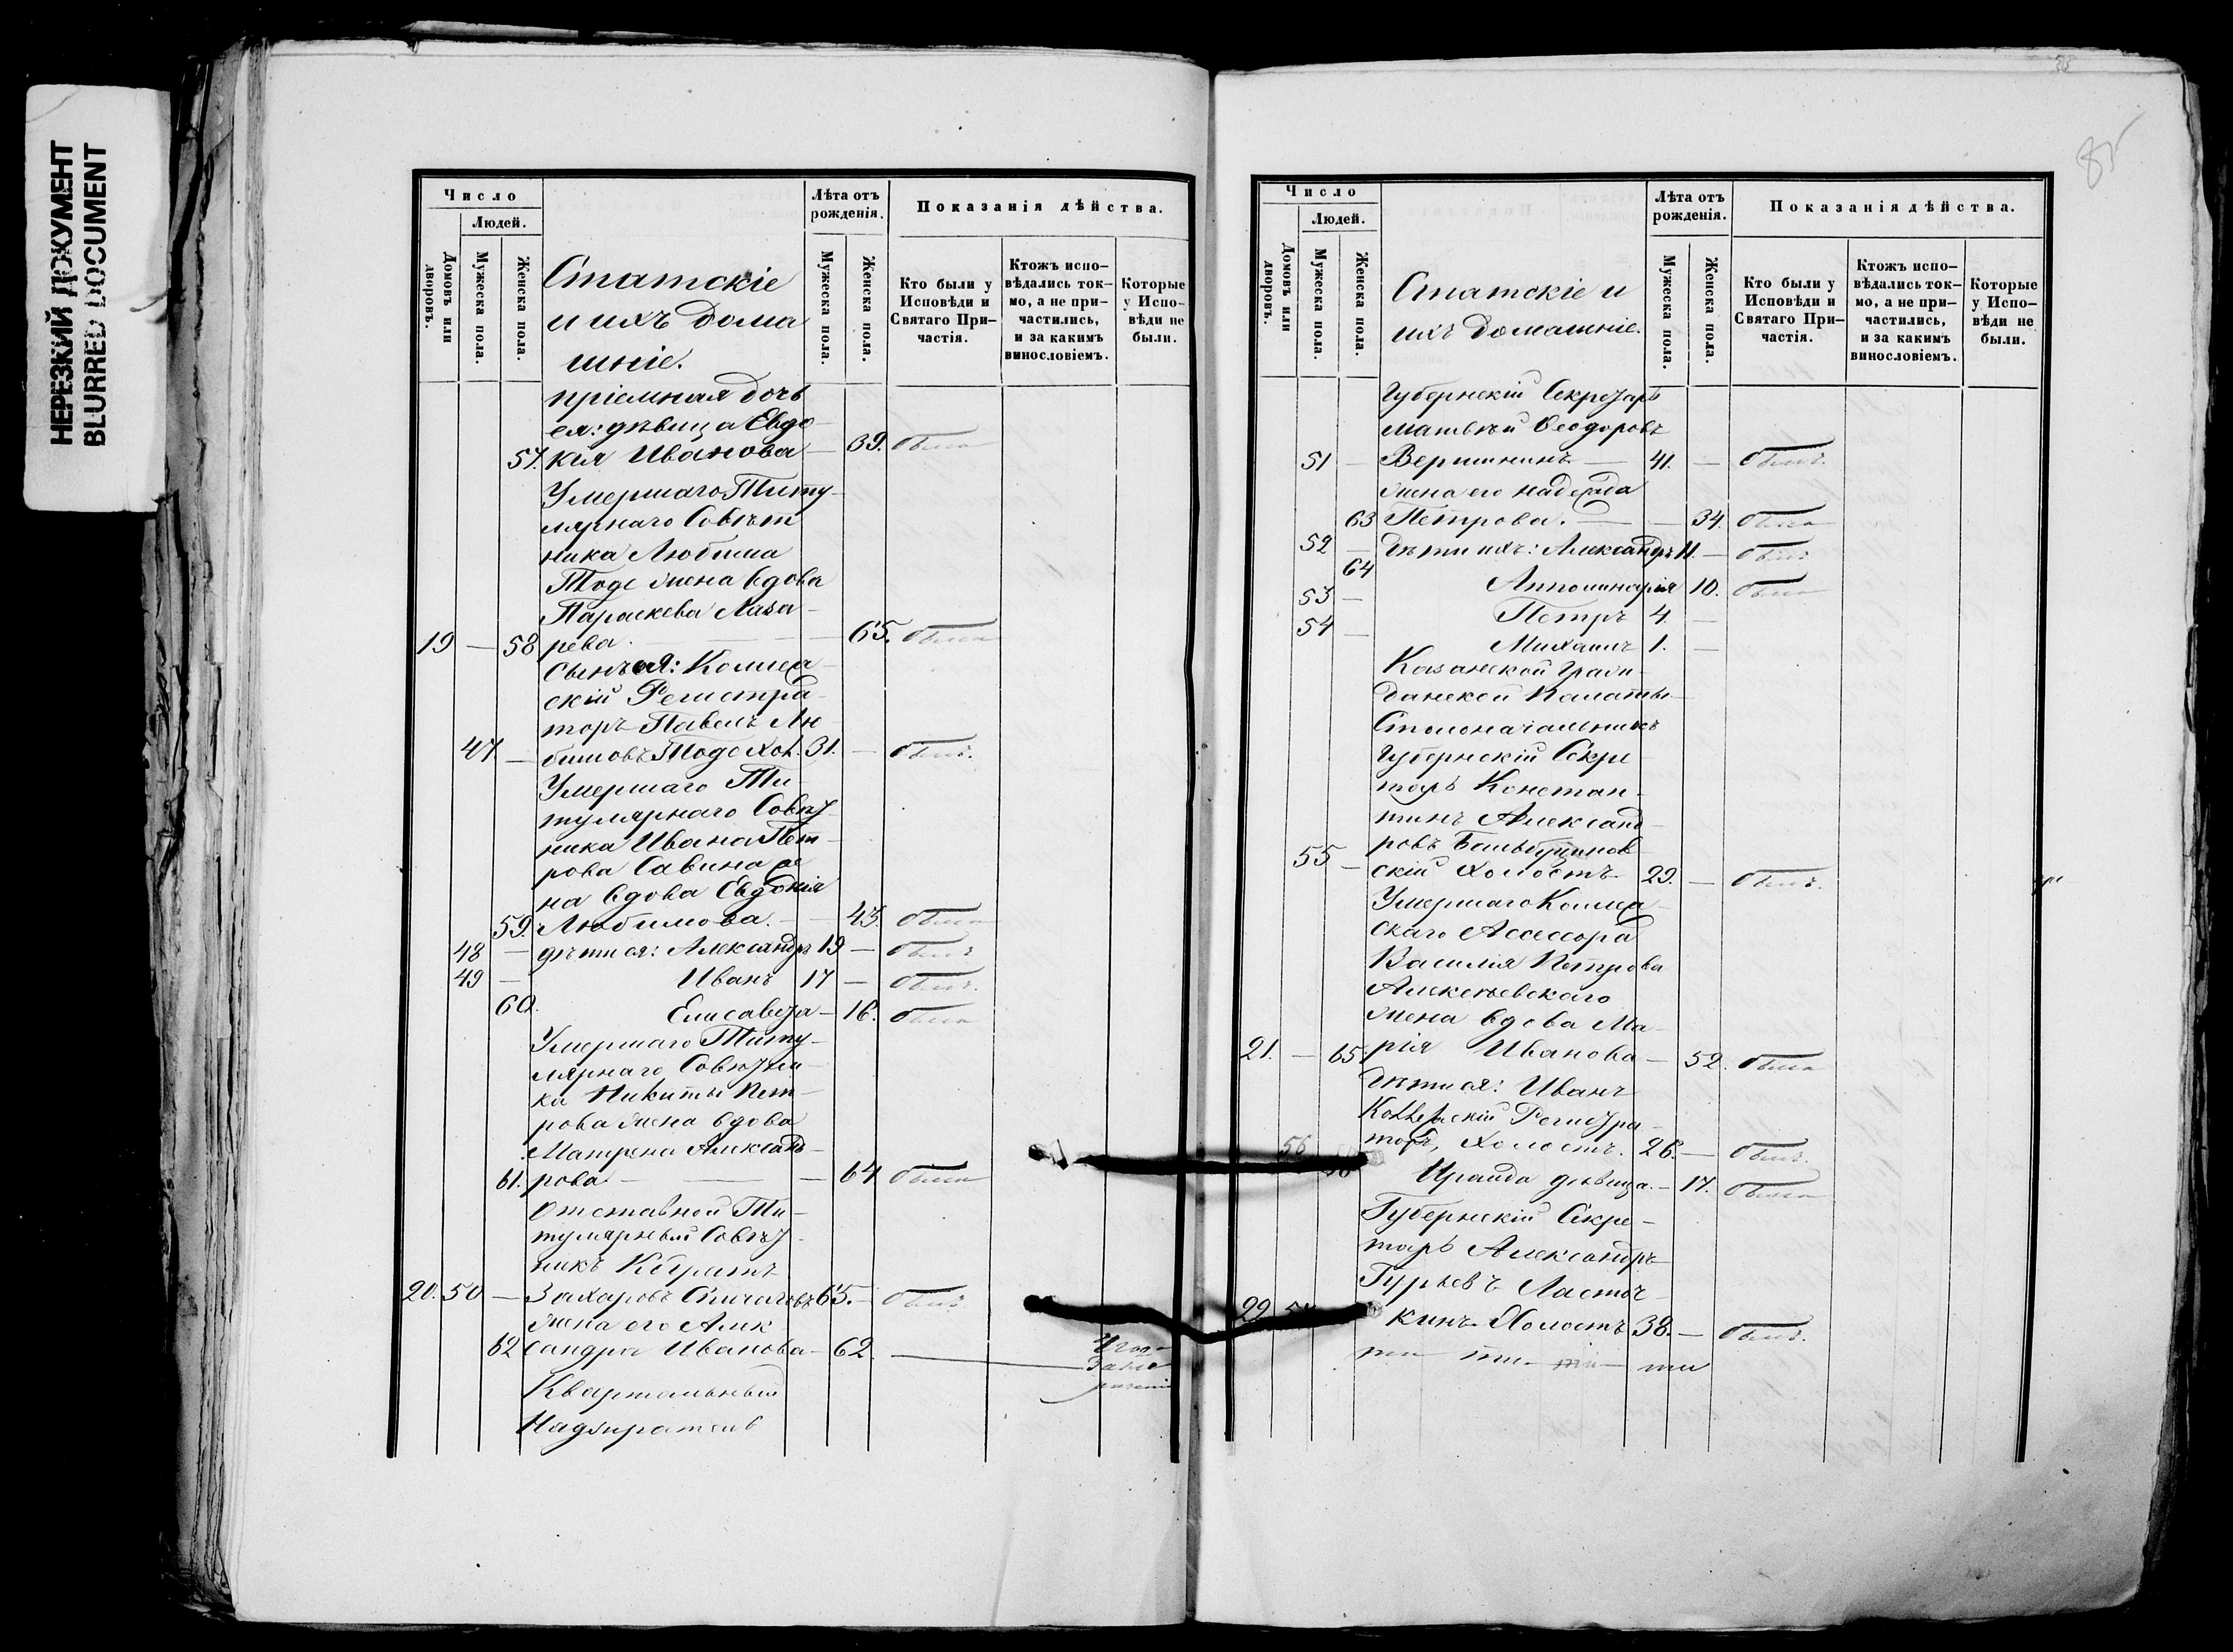 НЕРЕЗКИЙ ДОКУМЕНТ
BLURRED DOCUMENT
Число
Людей.
Домовъ или дворовъ.
Мужеска пола.
Женска пола.
Статскіе
и ихъ дома
шніе.
Лѣта отъ рожденія.
Мужеска пола.
Женска пола.
Показанія дѣйства.
Кто были у Исповѣди и Святаго При-частія.
Ктожъ испо-вѣдались ток-мо, а не при-частились, и за какимъ винословіемъ.
Которые у Испо-вѣди не были.
пріемная дочь
ея: дѣвица Евдо
57. кія Иванова — 39. была
Умершаго Титу-
лярнаго Совѣт
ника Любима
Тоде жена вдова
Параскева Лаза-
19 — 58 рева — 65. была
Сынъ ея: Коллеж-
скій Регистра-
торъ Павелъ Лю-
47. — бимовъ Тоде хол. 31. — былъ.
Умершаго Ти-
тулярнаго Совѣт
ника Ивана Пет-
рова Савина же
на вдова Евдокія
59. Любимова. — 43. была
48 — дѣти ея: Александръ 19 — былъ
49 — Иванъ 17 — былъ.
60. Елисавета — 16. была
Умершаго Титу-
лярнаго Совѣтни-
ка Никиты Пет-
рова жена вдова
Матрена Александ-
61. рова — 64 была
Отставной Ти-
тулярный Совѣт-
никъ
20. 50 — Захаровъ 65. — былъ.
жена его Алек
62 сандра Иванова — 62. —
Квартальный
Надзиратель
85
Число
Людей.
Домовъ или дворовъ.
Мужеска пола.
Женска пола.
Статскіе и
ихъ домашніе.
Лѣта отъ рожденія.
Мужеска пола.
Женска пола.
Показанія дѣйства.
Кто были у Исповѣди и Святаго При-частія.
Ктожъ испо-вѣдались ток-мо, а не при-частились, и за какимъ винословіемъ.
Которые у Испо-вѣди не были.
Губернскій Секретарь
Матвѣй Ѳеодоровъ
51 — Вершининъ — 41. — былъ.
жена его Надежда
63 Петрова. — 34. была
52 — Дѣти ихъ: Александръ 11. — былъ
64 Апполинарія 10. была
53 — Петръ 4. —
54 — Михаилъ 1. —
Казанской Граж-
данской Палаты
Столоначальникъ
Губернскій Секре-
тарь Констан-
тинъ Александ-
ровъ
55 — скій холостъ. 29. — былъ.
Умершаго Коллеж-
скаго Асессора
Василія Петрова
Алексѣевскаго
жена вдова Ма-
21. — 65. рія Иванова — 52. была
Дѣти ея: Иванъ
Коллежскій Регистра-
56 торъ, холостъ. 26. — былъ.
Ираида дѣвица. — 17. была
Губернскій Секре-
тарь Александръ
Гурьевъ Ласточ-
22 кинъ Холостъ 38. — былъ.